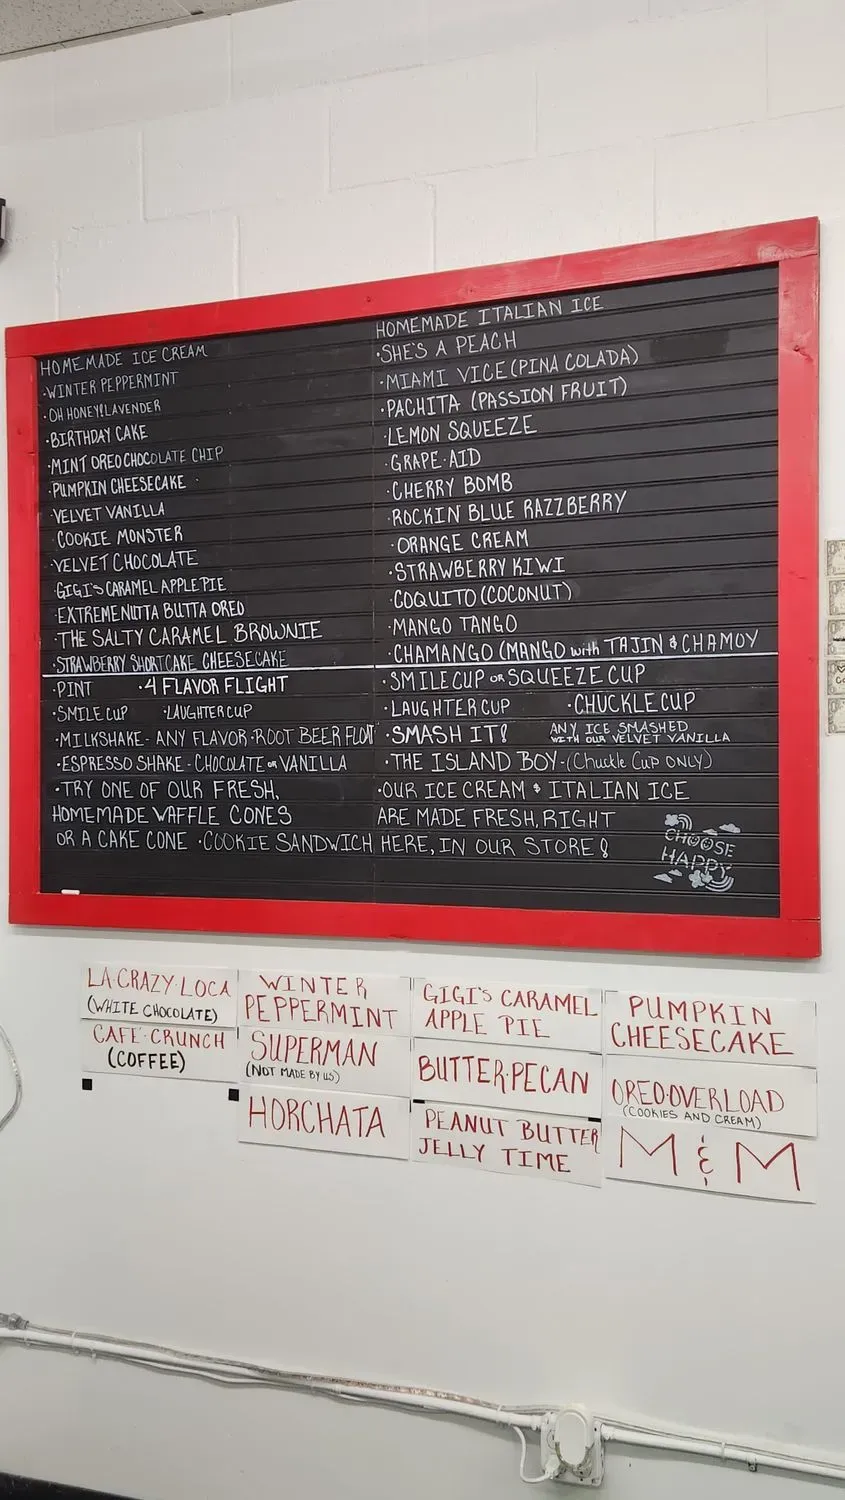 HOMEMADE ICE CREAM
·WINTER PEPPERMINT
·OH HONEY! LAVENDER
·BIRTHDAY CAKE
·MINT OREO CHOCOLATE CHIP
·PUMPKIN CHEESECAKE
·VELVET VANILLA
·COOKIE MONSTER
·VELVET CHOCOLATE
·GIGI'S CARAMEL APPLE PIE
·EXTREME NUTTA BUTTA OREO
·THE SALTY CARAMEL BROWNIE
·STRAWBERRY SHORTCAKE CHEESECAKE
·PINT ·4 FLAVOR FLIGHT
·SMILE CUP ·LAUGHTER CUP
·MILKSHAKE - ANY FLAVOR ·ROOT BEER FLOAT
·ESPRESSO SHAKE - CHOCOLATE OR VANILLA
·TRY ONE OF OUR FRESH,
HOMEMADE WAFFLE CONES
OR A CAKE CONE ·COOKIE SANDWICH
HOMEMADE ITALIAN ICE
·SHE'S A PEACH
·MIAMI VICE (PINA COLADA)
·PACHITA (PASSION FRUIT)
·LEMON SQUEEZE
·GRAPE-AID
·CHERRY BOMB
·ROCKIN BLUE RAZZBERRY
·ORANGE CREAM
·STRAWBERRY KIWI
·COQUITO (COCONUT)
·MANGO TANGO
·CHAMANGO (MANGO with TAJIN & CHAMOY
·SMILE CUP OR SQUEEZE CUP
·LAUGHTER CUP ·CHUCKLE CUP
·SMASH IT! ANY ICE SMASHED
WITH OUR VELVET VANILLA
·THE ISLAND BOY - (Chuckle Cup ONLY)
·OUR ICE CREAM & ITALIAN ICE
ARE MADE FRESH, RIGHT
HERE, IN OUR STORE!
CHOOSE
HAPPY
LA·CRAZY·LOCA
(WHITE CHOCOLATE)
CAFÉ·CRUNCH
(COFFEE)
WINTER
PEPPERMINT
SUPERMAN
(NOT MADE BY US)
HORCHATA
GIGI'S CARAMEL
APPLE PIE
BUTTER·PECAN
PEANUT BUTTER
JELLY TIME
PUMPKIN
CHEESECAKE
OREO·OVERLOAD
(COOKIES AND CREAM)
M & M